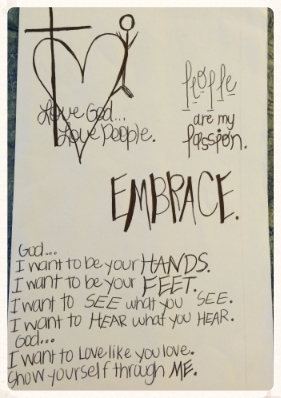 Love God...
Love People.
People
are my
passion.
EMBRACE.
God...
I want to be your HANDS.
I want to be your FEET.
I want to SEE what you SEE.
I want to HEAR what you HEAR.
God...
I want to Love like you love.
Show yourself through ME.